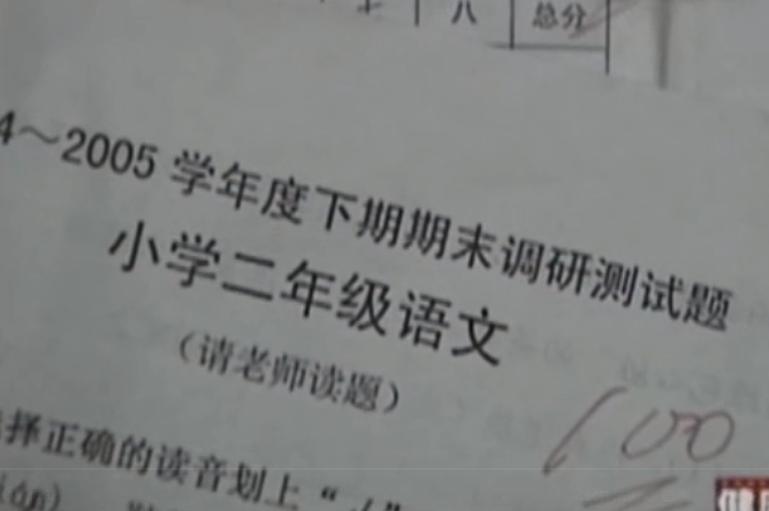 八 总分
4～2005 学年度下期期末调研测试题
小学二年级语文
（请老师读题）
择正确的读音划上“√”
100